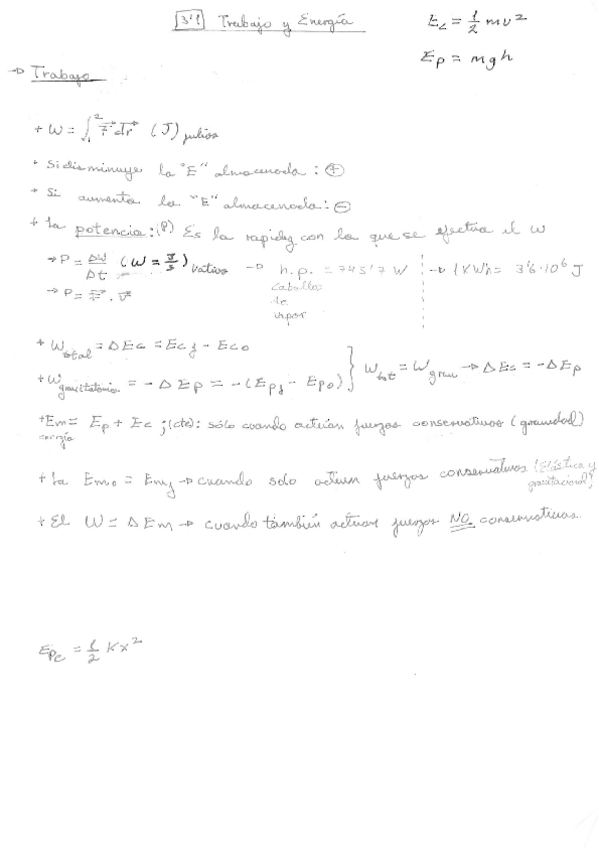 3'1 Trabajo y Energía
Ec = 1/2 mv²
Ep = mgh
→ Trabajo
+ W = ∫₁² F⃗ dr⃗ (J) julios
+ Si disminuye la "E" almacenada: ⊕
+ Si aumenta la "E" almacenada: ⊖
+ la potencia: (P) Es la rapidez con la que se efectua el W
→ P = ΔW/Δt (W = J/s) vatios → h.p. = 745'7 W → 1 KWh = 3'6·10⁶ J
caballos de vapor
→ P = F⃗ · v⃗
+ W total = ΔEc = Ecf - Eco
+ W gravitatorio = - ΔEp = -(Epf - Epo) } Wtot = Wgrav → ΔEc = -ΔEp
+ Em = Ep + Ec ; (cte): sólo cuando actúan fuerzas conservativas (gravedad)
energía
+ la Emo = Emf → cuando solo actúen fuerzas conservativas (elástica y gravitacional)
+ El W = ΔEm → cuando también actúan fuerzas NO conservativas.
Epe = 1/2 Kx²